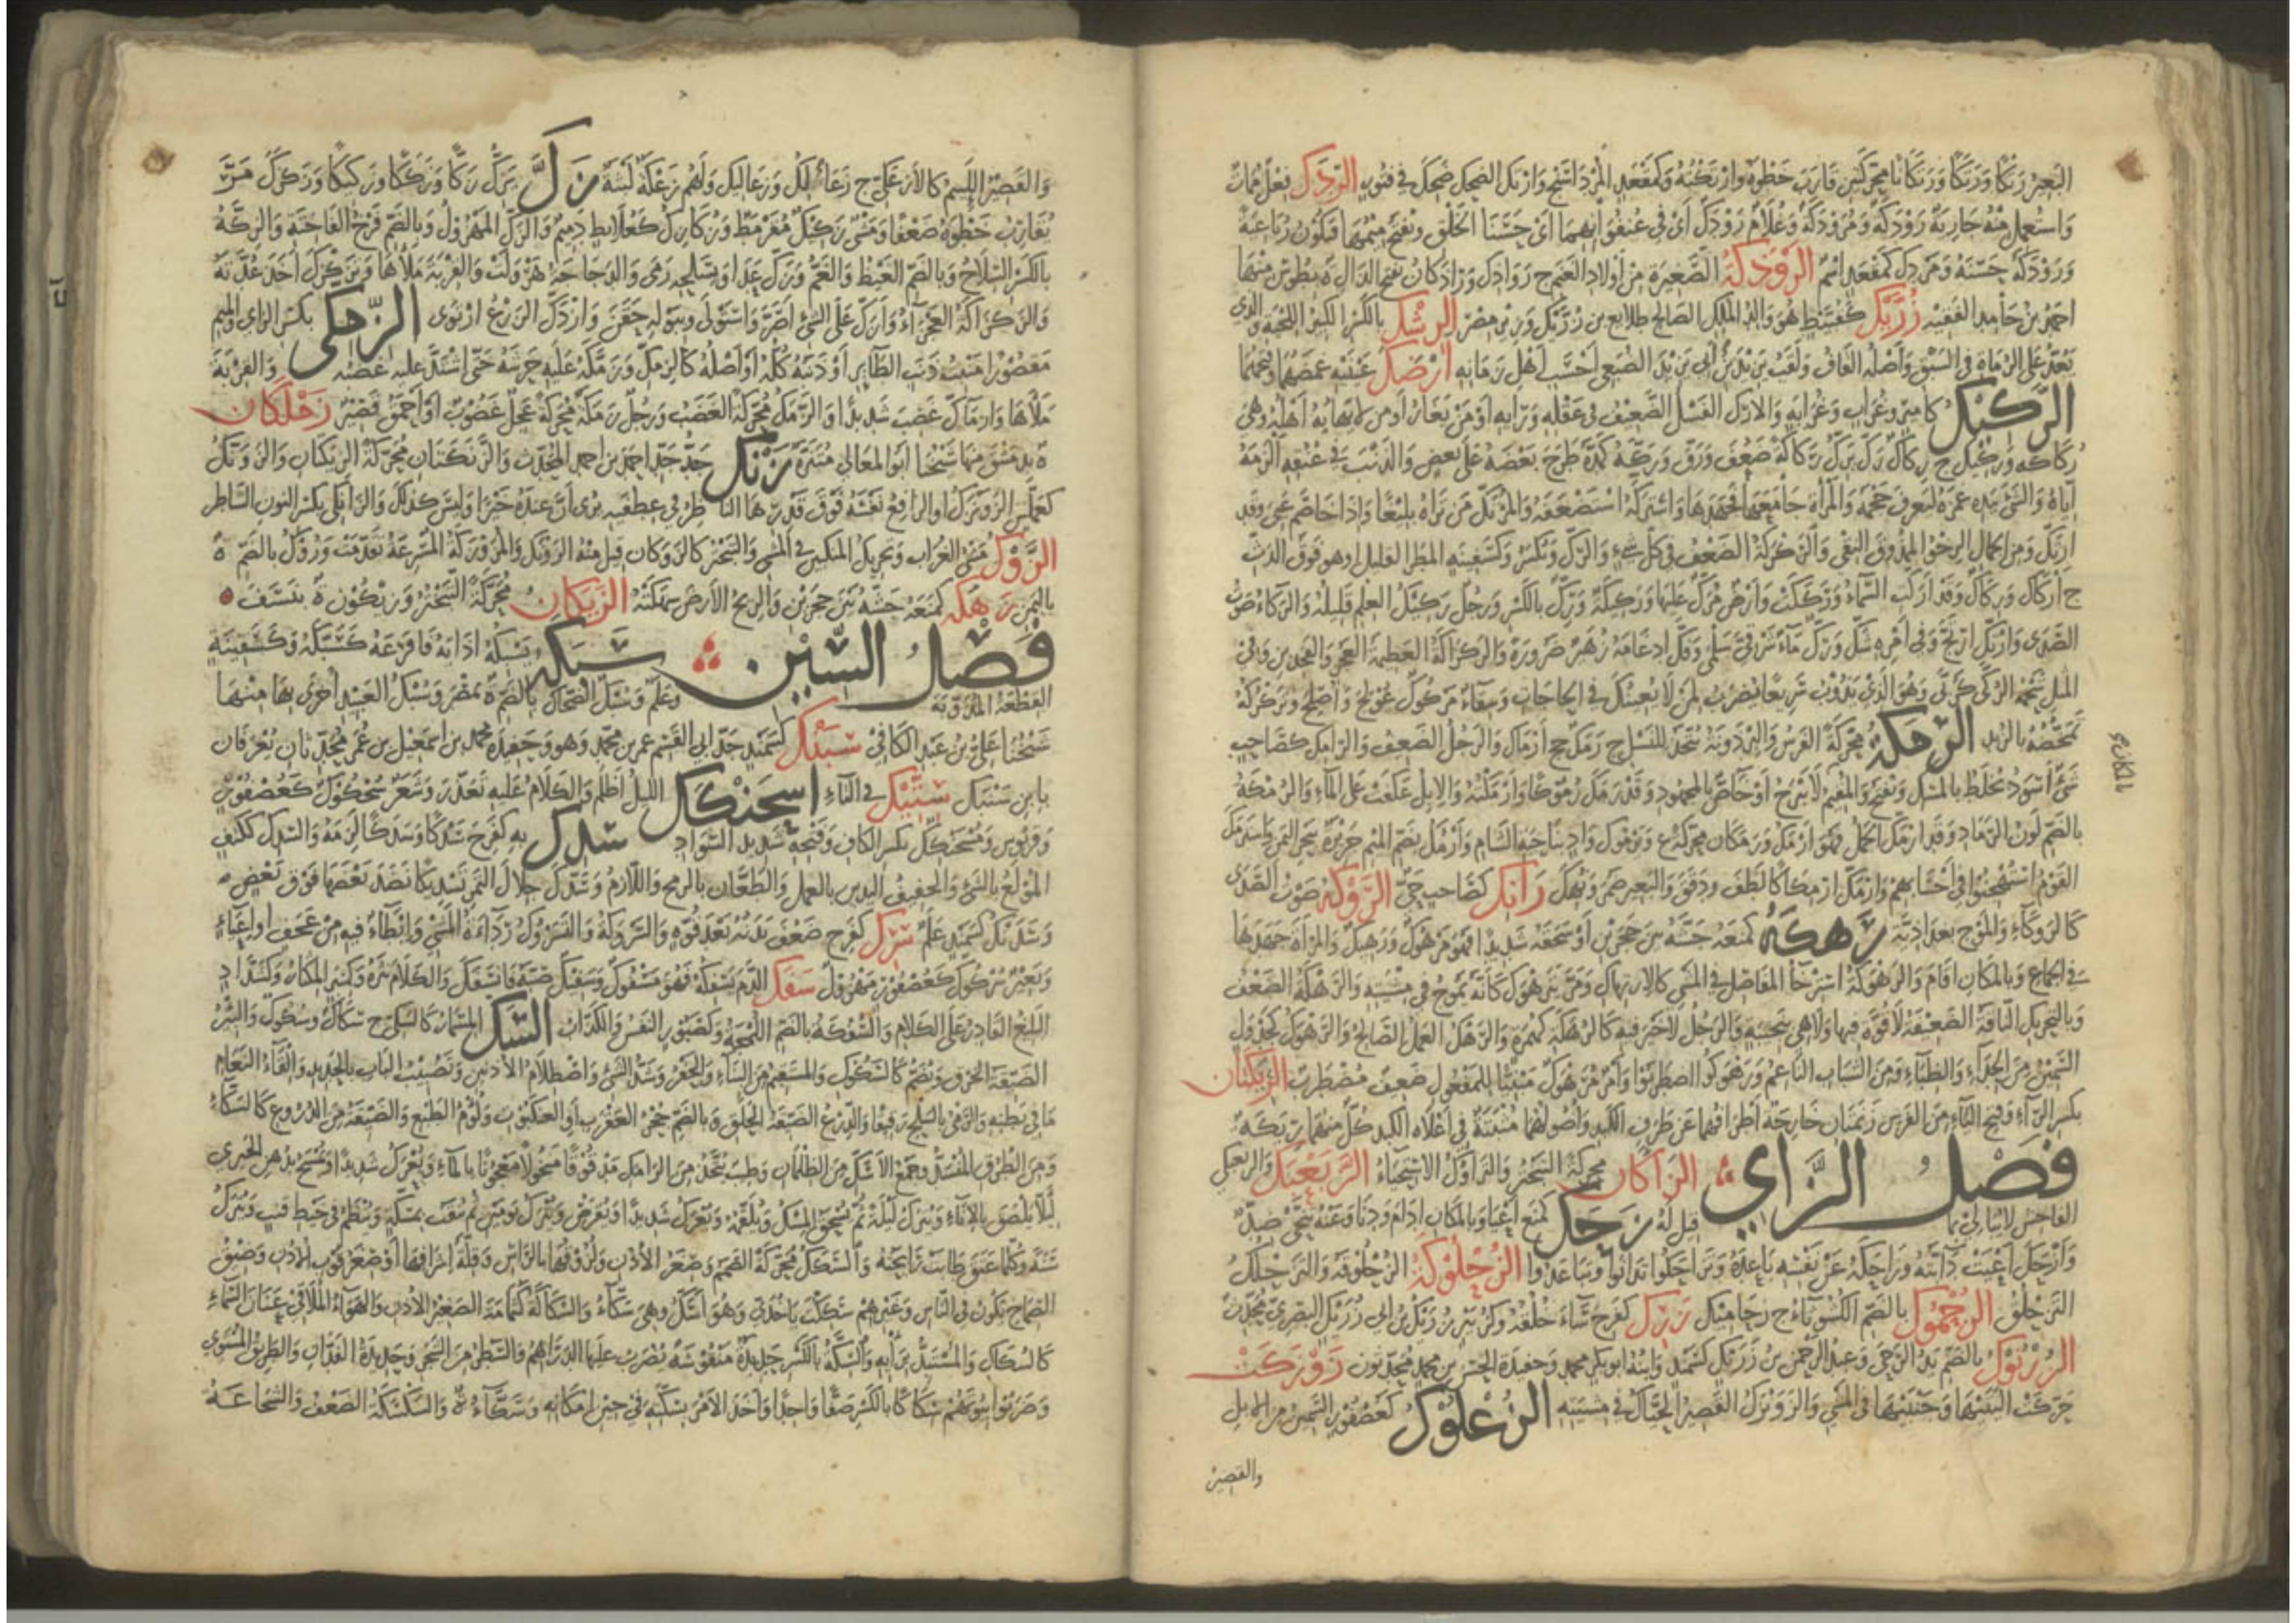 البعير رتكا ورتكا ورتكانا محركتين قارب خطوه وارتكته وكمقعد المرداسنج وارتك الضحك ضحك في فتور الردك فعل ممات
واستعمل منه جارية رودكة ومرودكة وغلام رودك أي في عنفوانهما أي حسنا الخلق وتفتح ميمهما فتكون رباعية
ورودكه حسنه ومردك كمقعد اسم الروذكة الصغيرة من أولاد الغنم ج رواذك وراذكان بفتح الذال ة بطوس منها
احمد بن حامد الفقيه رزيك كقبيط هو والد الملك الصالح طلائع بن رزيك وزير مصر الرشك بالكسر الكبير اللحية والذي
يعد على الرماة في السبق وأصله القاف ولقب يزيد بن ابي يزيد الضبعي أحسب أهل زمانه أرضك عينيه غمضهما وفتحهما
الركيك كأمير وغراب وغرابة والأرك الفسل الضعيف في عقله ورأيه أو من لا يغار أو من لا يهابه أهله وهي
ركاكة وركيك ج ركاك رك يرك ركاكة ضعف ورق وركه كمده طرح بعضه على بعض والذنب في عنقه ألزمه
إياه والشيء بيده غمزه ليعرف حجمه والمرأة جامعها فجهدها واستركه استضعفه والمرتك من تراه بليغا وإذا خاصم عي وقد
ارتك ومن الجمال الرخو الممذوق النقي والركركة الضعف في كل شيء والرك وتكسر وكسفينة المطر القليل أو هو فوق الدث
ج أركاك وركاك وقد أركت السماء ورككت وأرض مرك عليها وركيكة ورك بالكسر ورجل ركيك العلم قليله والركاء صوت
الصدى وارتك ارتج وفي أمره شك ورك ماء شرقي سلمى وفك إدغامه زهير ضرورة والركراكة العظيمة العجز والفخذين وفي
المثل شحمة الركى كربى وهو الذي يذوب سريعا يضرب لمن لا يعينك في الحاجات وسقاء مركوك عولج وأصلح وركركه
تمخضه بالزبد الرمكة محركة الفرس والبرذونة تتخذ للنسل ج رمك جج أرماك والرجل الضعيف والرامك كصاحب
شيء أسود يخلط بالمسك ويفتح والمقيم لا يبرح أو خاص بالمجهود وقد رمك رموكا وأرمكته والإبل عكفت على الماء والرمكة
بالضم لون الرماد وقد ارمك الجمل فهو أرمك ورمكان محركة ع ويرموك واد بناحية الشام وأرمك بضم الميم جزيرة ببحر اليمن واسترمك
القوم استهجنوا في أحسابهم وارمك ارمكاكا لطف ودق والبعير ضمر ونهك رانك كصاحب حي الروكة صوت الصدى
كالروكاء والموج بغداذية رهكه كمنعه جشه بين حجرين أو سحقه شديدا فهو مرهوك ورهيك والمرأة جهدها
في الجماع وبالمكان أقام والرهوكة استرخاء المفاصل في المشي كالارتهاك ومر يترهوك كأنه يموج في مشيته والرهكة الضعف
وبالتحريك الناقة الضعيفة لا قوة فيها ولا هي بنجيبة والرجل لا خير فيه كالرهكة كهمزة والرهك العمل الصالح والرهوك كجدول
السمين من الجداء والظباء ومن الشباب الناعم وترهوكوا اضطربوا وأمر مرهوك مبنيا للمفعول ضعيف مضطرب الريكتان
بكسر الراء وفتح الياء من الفرس زنمتان خارجة أطرافهما عن طرف الكتد وأصولهما مثبتة في أعلاه الكتد كل منهما ريكة
فصل الزاي الزأكان محركة التبختر والتزاؤك الاستحياء الزبعبك والزبعبكي
الفاحش لا يبالي بما قيل له زحك كمنع أعيا وبالمكان أقام ودنا وعنه تنحى ضد
وأزحك أعيت دابته وزاحكه عن نفسه باعده وتزاحكوا تدانوا وتباعدوا الزحلوكة الزحلوقة والتزحلك
التزحلق الزحموك بالضم الكشوثاء ج زحاميك زرك كفرح ساء خلقه وكزبير زريك بن أبي زريك البصري محدث
الزرنوك بالضم يد الرحى وعبد الرحمن بن زرنك كسمند وابنه ابو بكر محمد وحفيده الحسن بن محمد محدثون زوزكت
حركت أليتيها وجنبيها في المشي والزوزك القصير الحياك في مشيته الزعلوك كعصفور السمين من الإبل
والقصير
والقصير اللئيم كالأزعكي ج زعائك وزعاليك ولهم زعكة لبثة زك يزك زكا وزككا وزكيكا وزكزك مر
يقارب خطوه ضعفا ومشي زكيك مقرمط وزكازك كعلابط دميم والزك المهزول وبالضم فرخ الفاختة والزكة
بالكسر السلاح وبالضم الغيظ والغم وزك عدا وبسلحه رمى والدجاجة هزولت والقربة ملأها وتزكزك أخذ عدته
والزكزاكة العجزاء وأزك على الشيء أصر واستولى وببوله حقن وازدك الزرع ارتوى الزمكى بكسر الزاي والميم
مقصورا منبت ذنب الطائر أو ذنبه كله أو أصله كالزمك وزمكه عليه حرشه حتى اشتد عليه غضبه والقربة
ملأها وازمأك غضب شديدا والزمك محركة الغضب ورجل زمكة محركة عجل غضوب أو أحمق قصير زملكان
ة بدمشق منها شيخنا أبو المعالي منتزه زنك جد جد احمد بن احمد المحدث والزنكتان محركة الزيكان والزونك
كعملس الزونزك أو الرافع نفسه فوق قدرها الناظر في عطفيه يرى أن عنده خيرا وليس كذلك والزانكي بكسر النون الشاطر
الزوك مشي الغراب وتحريك المنكبين في المشي والتبختر كالزوكان قيل منه الزونك والمزوزكة المسرعة تقدمت وزوك بالضم ة
باليمن زهكه كمنعه جشه بين حجرين والريح الأرض سهكته الزيكان محركة التبختر وزيكون ة بنسف
فصل السين سبكه يسبكه أذابه فأفرغه كسبكه وكسفينة
القطعة المذوبة وعلم وسبك الضحاك بالضم ة بمصر وسبك العبيد أخرى بها منها
شيخنا علي بن عبد الكافي سبنك كسمند جد أبي القسم عمر بن محمد وهو وحفيده محمد بن اسمعيل بن عمر محدثان يعرفان
بابن سبنك ستيك في التاء اسحنكك الليل أظلم والكلام عليه تعذر وشعر سحكوك كعصفور
وقربوس ومسحنكك بكسر الكاف وفتحه شديد السواد سدك به كفرح سدكا وسدكا لزمه والسدك ككتف
المولع بالشيء والخفيف اليدين بالعمل والطعان بالرمح واللازم وسدك جلال التمر تسديكا نضد بعضها فوق بعض
وسدنك كسمند علم سرك كفرح ضعف بدنه بعد قوة والسروكة والتسروك رداءة المشي وإبطاء فيه من عجف أو إعياء
وبعير سركوك كعصفور مهزول سفك الدم يسفكه فهو مسفوك وسفيك صبه فانسفك والكلام نثره وكمنبر المكثار وكشداد
البليغ القادر على الكلام والسفكة بالضم اللمجة وكصبور النفس والكذاب السك المسمار كالسكي ج سكاك وسكوك والبئر
الضيقة الخرق وتضم كالسكوك والمستقيم من البناء والحفر وسد الشيء واصطلام الأذنين وتضبيب الباب بالحديد وإلقاء النعام
ما في بطنه والرمي بالسلح رقيقا والدرع الضيقة الحلق وبالضم جحر العقرب أو العنكبوت ولؤم الطبع والضيقة من الدروع كالسكاء
ومن الطرق المنسد وجمع الأسك من الظلمان وطيب يتخذ من الرامك مدقوقا منخولا معجونا بالماء ويعرك شديدا ويمسح بدهن الخيري
لئلا يلصق بالإناء ويترك ليلة ثم يسحق المسك ويلقمه ويعرك شديدا ويقرص ويترك يومين ثم يثقب بمسلة وينظم في خيط قنب ويترك
سنة وكلما عتق طابت رائحته والسكك محركة الصمم وصغر الأذن ولزوقها بالرأس وقلة إشرافها أو صغر قوب الأذن وضيق
الصماخ يكون في الناس وغيرهم سككت يا جدي وهو أسك وهي سكاء والسكاكة كثمامة الصغير الأذن والهواء الملاقي عنان السماء
كالسكاك والمستبد برأيه والسكة بالكسر حديدة منقوشة يضرب عليها الدراهم والسطر من الشجر وحديدة الفدان والطريق المستوي
وضربوا بيوتهم سكاكا بالكسر صفا واحدا وأخذ الأمر بسكته في حين إمكانه وسكاء ة والسكسكة الضعف والشجاعة